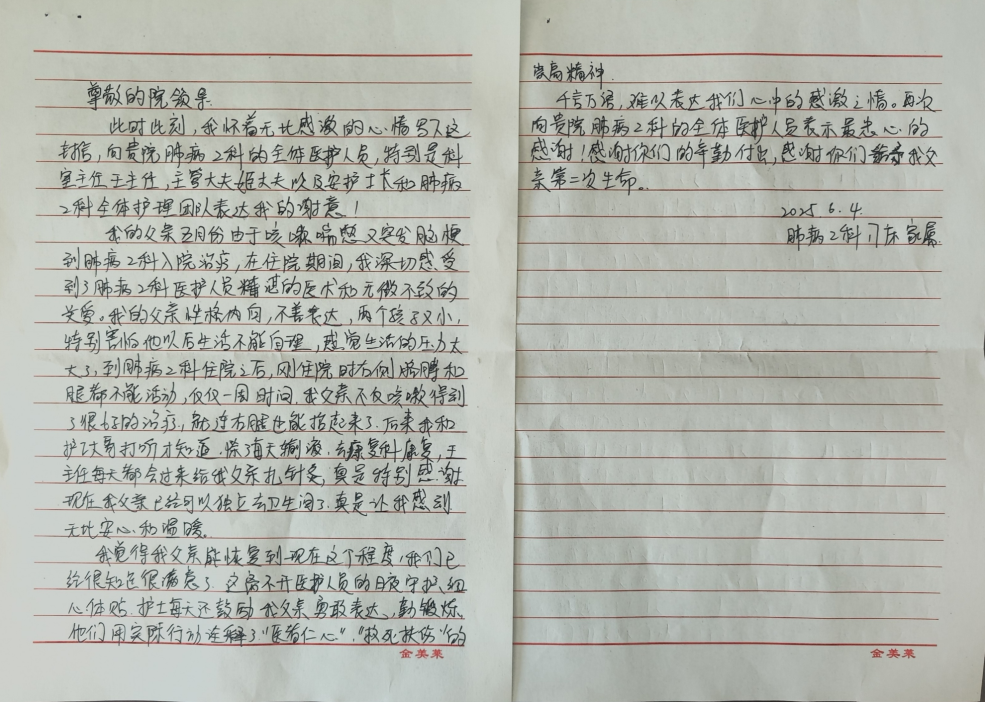 尊敬的院领导
此时此刻，我怀着无比感激的心情写下这
封信，向贵院肺病2科的全体医护人员，特别是科
室主任王主任，主管大夫姬大夫以及安护士长和肺病
2科全体护理团队表达我的谢意！
我的父亲五月份由于咳嗽喘憋又突发脑梗
到肺病2科入院治疗，在住院期间，我深切感受
到了肺病2科医护人员精湛的医术和无微不致的
关爱。我的父亲性格内向，不善表达，两个孩子又小，
特别害怕他以后生活不能自理，感觉生活的压力太
大了，到肺病2科住院之后，刚住院时右侧胳膊和
腿都不能活动，仅仅一周时间，我父亲不仅咳嗽得到
了很好的治疗，就连右腿也能抬起来了。后来我和
护工打听才知道，除了每天输液，去康复科康复，王
主任每天都会过来给我父亲扎针灸，真是特别感谢
现在我父亲已经可以独立去卫生间了，真是让我感到
无比安心和温暖。
我觉得我父亲能恢复到现在这个程度，我们已
经很知足很满意了，这离不开医护人员的日夜守护、细
心体贴，护士每天还鼓励我父亲勇敢表达，勤锻炼，
他们用实际行动诠释了“医者仁心”，“救死扶伤”的
金美莱
崇高精神.
千言万语，难以表达我们心中的感激之情。再次
向贵院肺病2科的全体医护人员表示最衷心的
感谢！感谢你们的辛勤付出，感谢你们给予我父
亲第二次生命。
2025.6.4.
肺病2科 床家属
金美莱